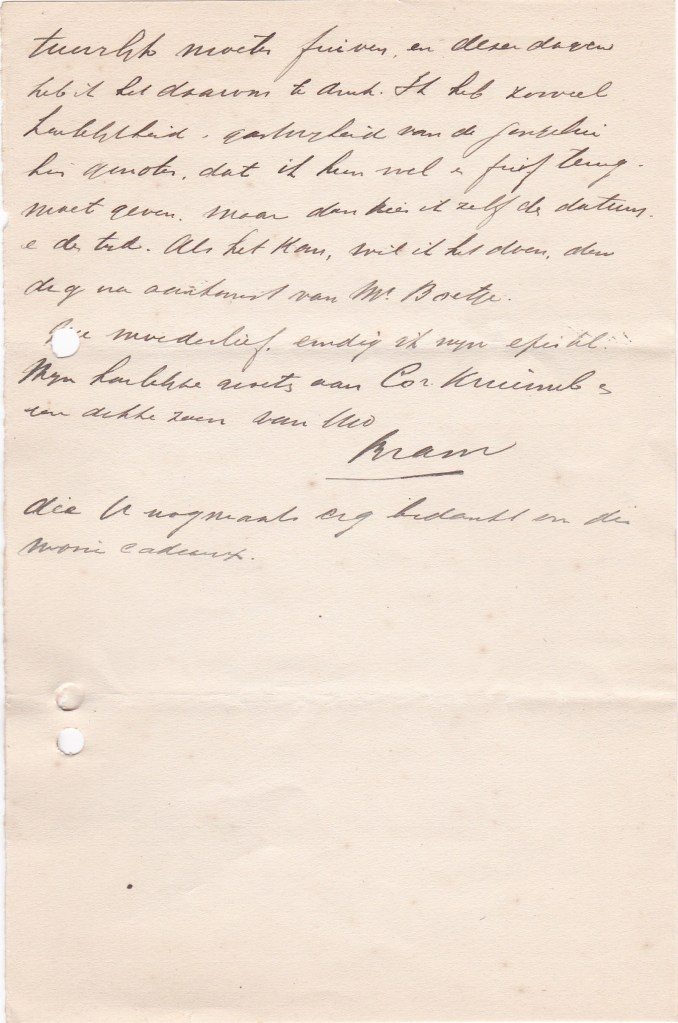 tuurlijk moeten fuiven, en dezer dagen
heb ik het daarvoor te druk. Ik heb zooveel
hartelijkheid, gastvrijheid van de
genoten, dat ik hun wel fuif terug
moet geven, maar dan kies ik zelf de datum
e de tijd. Als het kan, wil ik het doen, den
dag na aankomst van Mr Boetje.
moederlief, eindig ik mijn epistel.
Mijn hartelijke groets aan Cor
een dikke zoen van Uw
Bram
die U nogmaals erg bedankt voor die
mooie cadeaux.